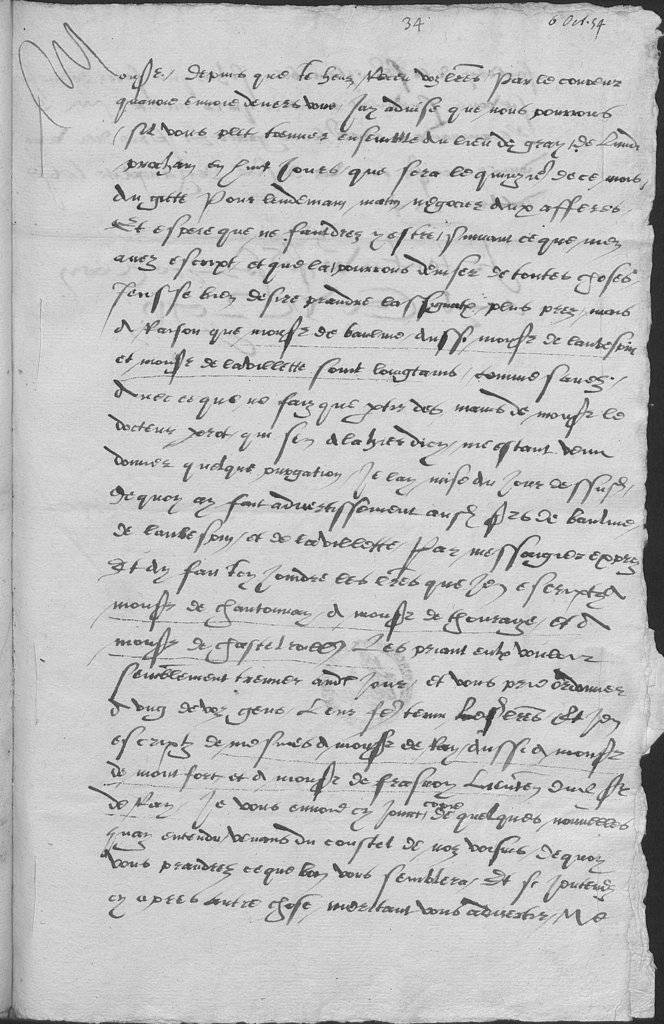 34
6 Oct. 54
Monsr. depuis que te heuz Receu voz lres par le coureur
quavoie envoié devers vous, Jay advisé que nous pourrons
sil vous plet trouver ensemble au lieu de gray, de Lundi
prochain en huit Jours, que sera le quinzie de ce mois
au gitte Pour lendemain matin négocier aux afferes,
Et espere que ne fauldrez y estre, suivant ce que men
avez escript, et que la pourrons deviser de toutes choses.
Jeusse bien désiré prandre lassignaon plus prez, mais
a Raison que monsr de baulme, aussi monsr de laubespin
et monsr de lavillette sont loingtains, comme savez,
avec ce que ne faiz que ptir des mains de monsr le
docteur prot, qui sen ala hier dicy, mestant venu
donner quelque purgation, Je lay mise au Jour dessusd,
de quoy ay fait advertissement ausd srs de baulme
de laubespin, et de lavillette, Par messaigier exprez
Et ay fait icy Joindre les lres que Jen escriptz a
monsr de chantonnay, a monsr de thouraize, et a
monsr de chastelroille, Les priant eulx vouloir
semblement trouver aud Jour, et vous prie ordonner
a ung de voz gens, Leur fe tenir lesd lres, Et Jen
escriptz de mesmes a monsr de Ray, aussi a monsr
de montfort, et a monsr de frasnoy Lieuten dud sr
de Ray, Je vous envoie cy Joinct copie de quelques nouvelles
quay entendu venans du coustel de noz voisins, de quoy
vous prandrez ce que bon vous semblera, Et si Jentendz
cy apres autre chose meritant vous advertir, Ne